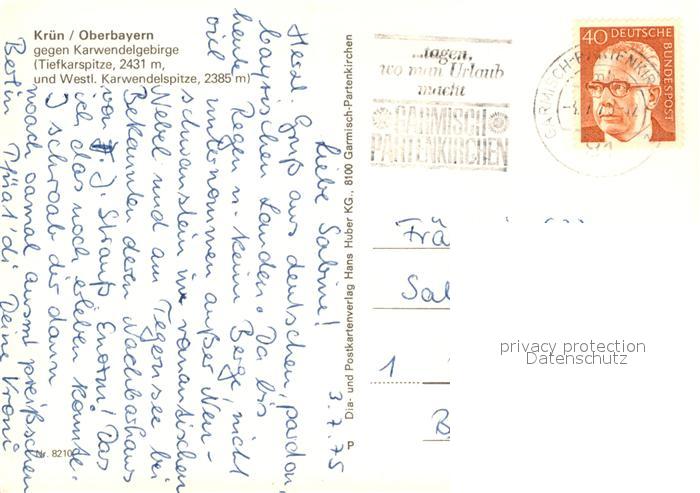 Krün / Oberbayern
gegen Karwendelgebirge
(Tiefkarspitze, 2431 m,
und Westl. Karwendelspitze, 2385 m)
...tagen,
wo man Urlaub
macht
GARMISCH
PARTENKIRCHEN
GARMISCH-PARTENKIRCHEN
40 DEUTSCHE
BUNDESPOST
3.7.75
Liebe Sabine!
Herzl. Gruß aus deutschen, pardon,
bayrischen Landen. Da bis
heute Regen u. keine Berge, nicht
viel unternommen außer Neu-
schwanstein im romantischen
Nebel und am Tegernsee bei
Bekannten deren Nachbarhaus
von F. J. Strauß. Enorm! Das
ich das noch erleben könnte.
I schroab dir dann
noach oamal ausm preißschen
Berlin. Pfüat di Deine
Dia- und Postkartenverlag Hans Huber KG., 8100 Garmisch-Partenkirchen
P
Nr. 8210
Frä
Sa
1
B
privacy protection
Datenschutz